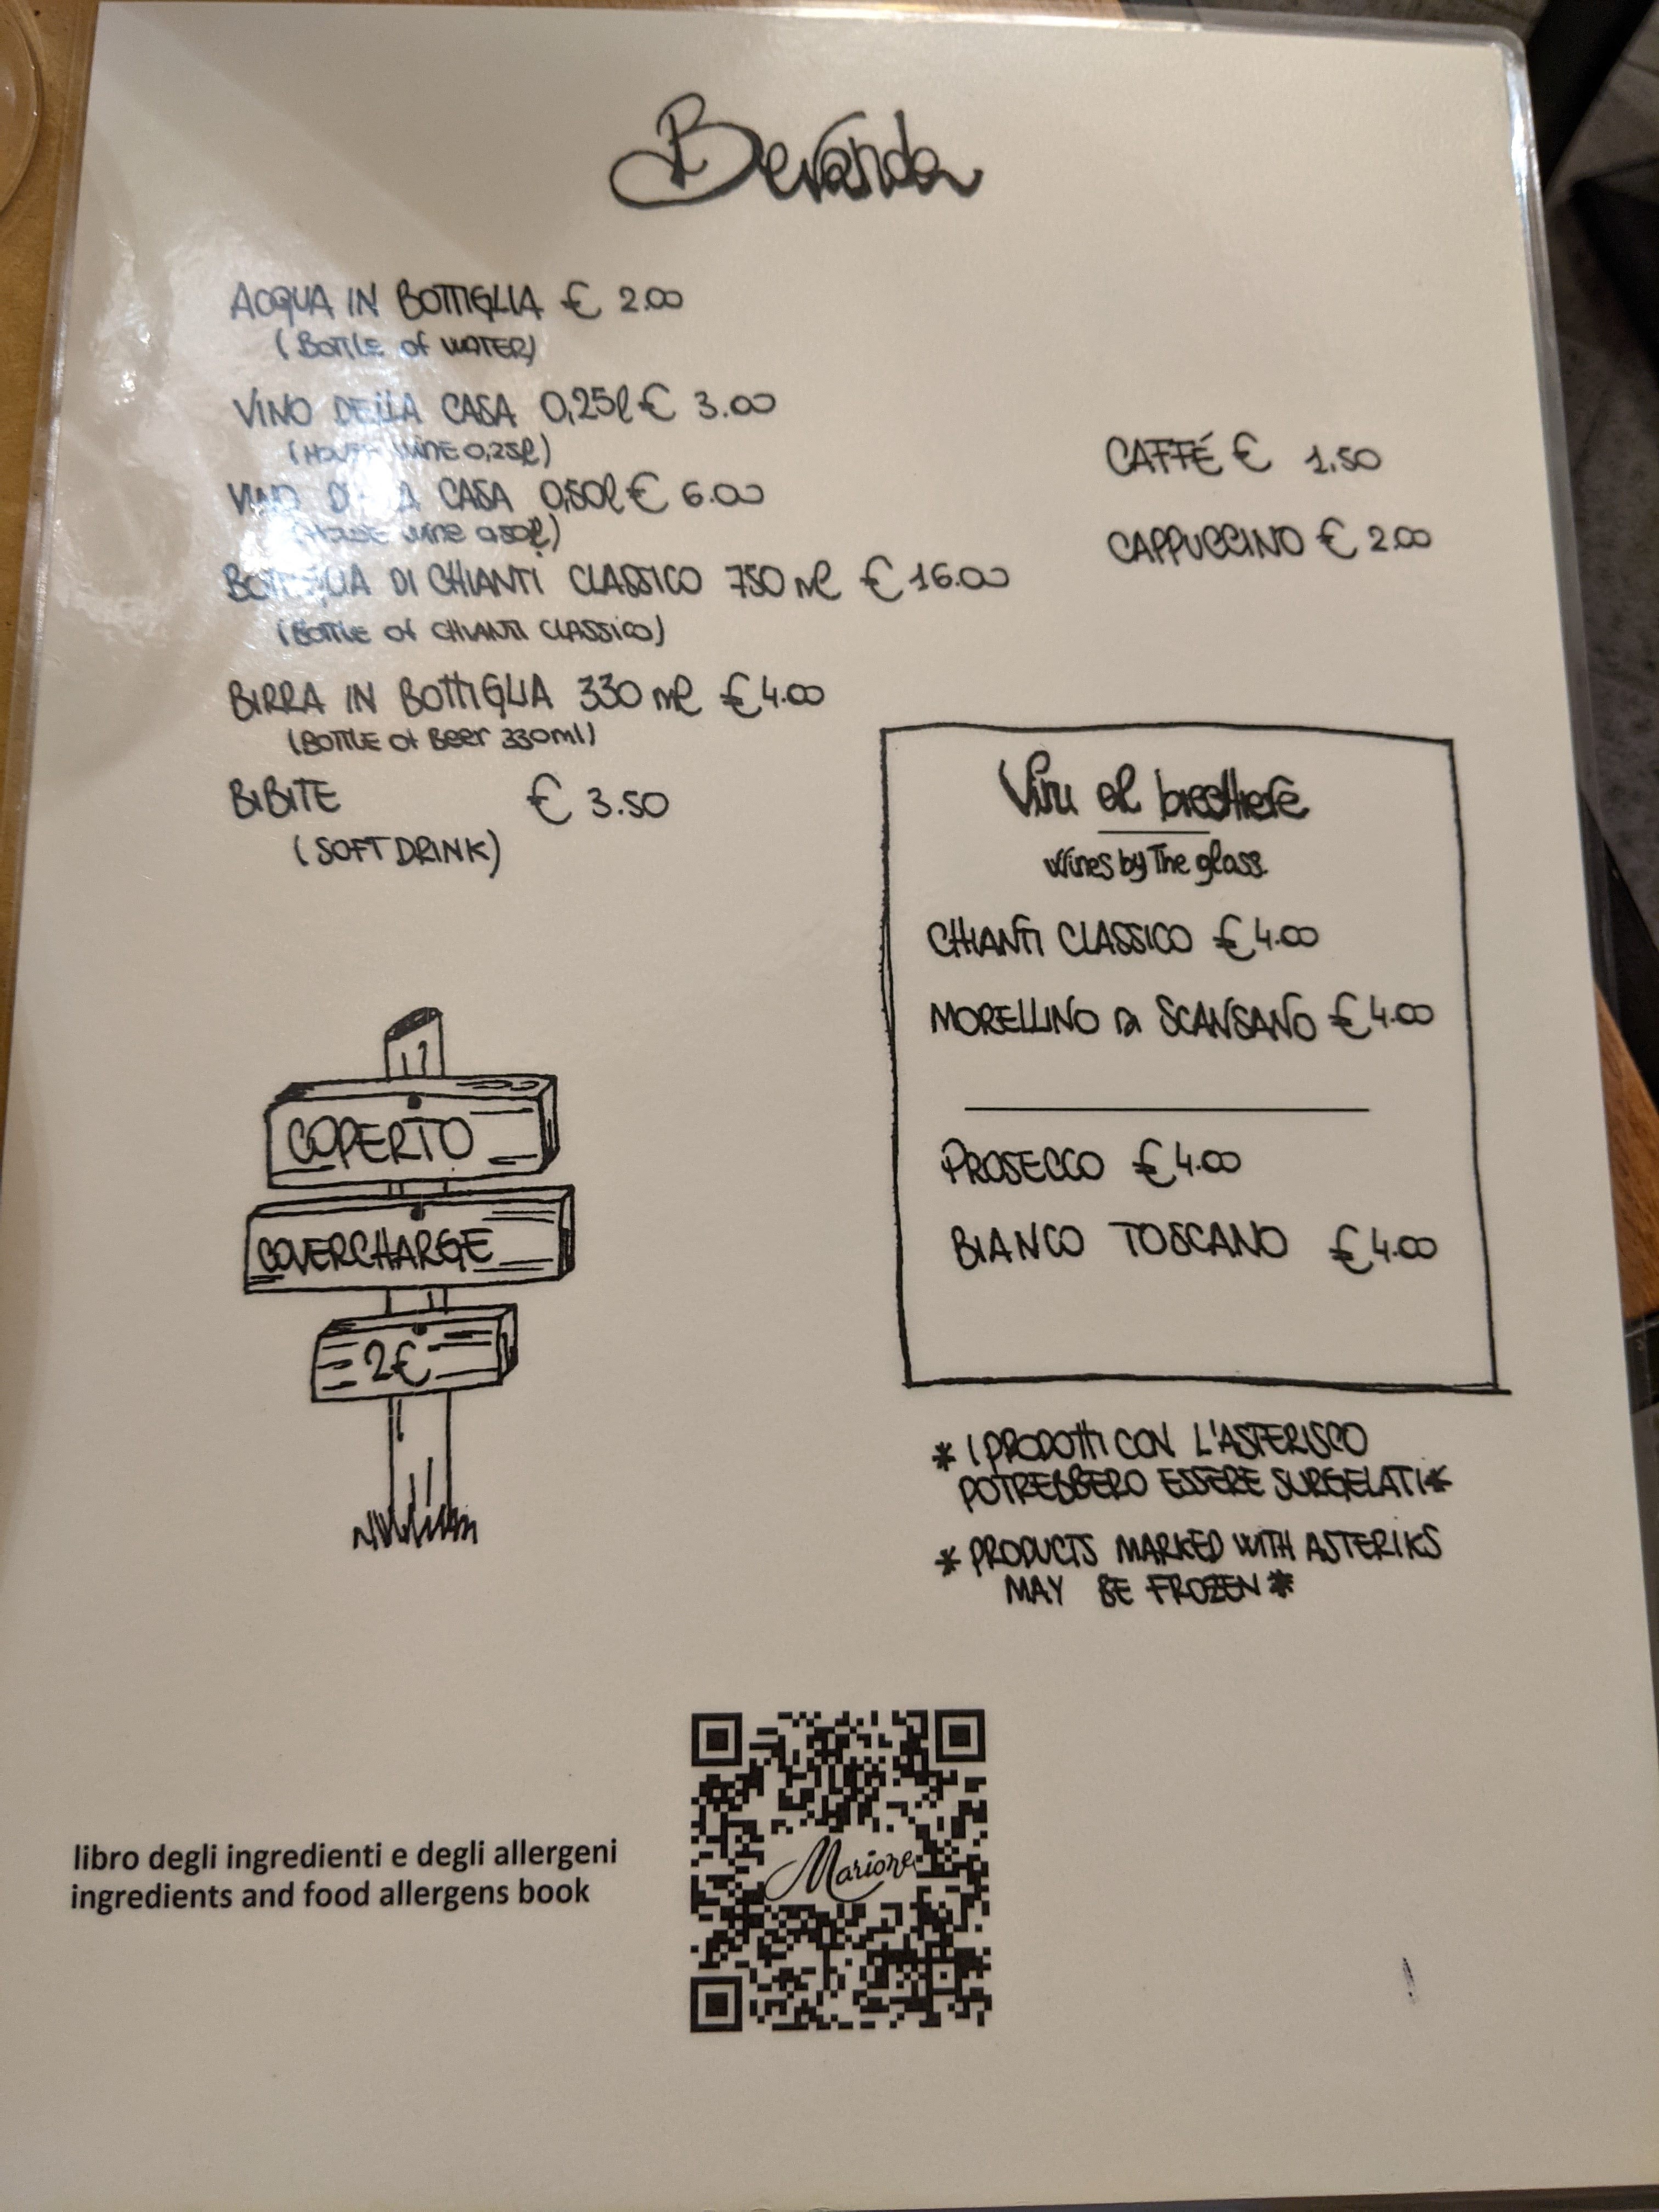 Bevanda
ACQUA IN BOTTIGLIA € 2.00
(BOTTLE OF WATER)
VINO DELLA CASA 0,25l € 3.00
(HOUSE WINE 0,25l)
VINO DELLA CASA 0,50l € 6.00
(HOUSE WINE 0,50l)
BOTTIGLIA DI CHIANTI CLASSICO 750 ml € 16.00
(BOTTLE OF CHIANTI CLASSICO)
BIRRA IN BOTTIGLIA 330 ml € 4.00
(BOTTLE OF Beer 330ml)
BIBITE € 3.50
(SOFT DRINK)
CAFFÉ € 1.50
CAPPUCCINO € 2.00
Vini al bicchiere
Wines by The glass.
CHIANTI CLASSICO € 4.00
MORELLINO DI SCANSANO € 4.00
PROSECCO € 4.00
BIANCO TOSCANO € 4.00
COPERTO
COVERCHARGE
2€
* I PRODOTTI CON L'ASTERISCO
POTREBBERO ESSERE SURGELATI *
* PRODUCTS MARKED WITH ASTERIKS
MAY BE FROZEN *
libro degli ingredienti e degli allergeni
ingredients and food allergens book
Marione